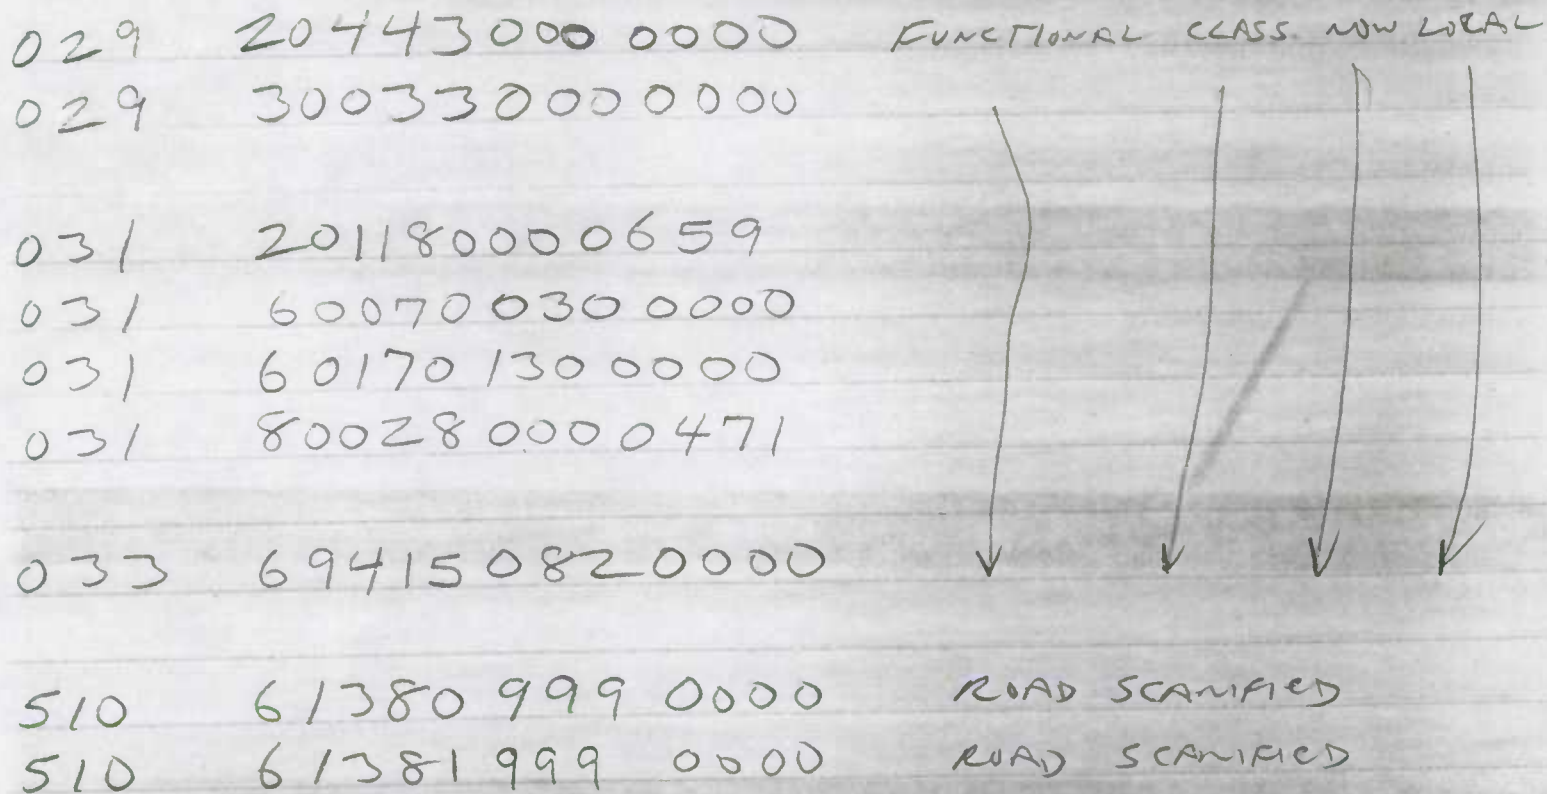 029 20443000 0000 FUNCTIONAL CLASS NOW LOCAL
029 300330000000
031 201180000659
031 60070030 0000
031 60170 130 0000
031 80028 0000471
033 694150820000
510 61380 999 0000 ROAD SCARIFIED
510 61381 999 0000 ROAD SCARIFIED